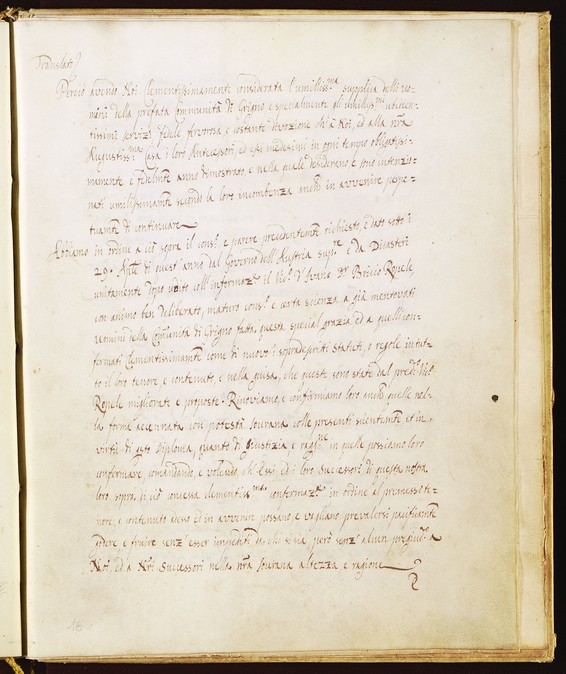 Tradislato
Perciò avendo Noi Clementissimamente considerata l'umiliss.ma supplica delli uo-
mini della prefata Communità di Grigno e specialmente gli umiliss.mi
tissimi servizi fedele fervorosa e costante devozione ch'à Noi, ed alla nr̃a
Augustiss.ma Casa i loro Antecessori, ed essi medesimi in ogni tempo obligatissi-
mamente e fedelm̃te anno dimostrato e nella quale desiderano, e sono intenzio-
nati umilissimamente secondo la loro incombenza anch̃ in avvenire perpe-
tuam̃te di continuare
Abbiamo in ordine a ciò sopra il cons.o e parere precedentem̃te richiesto, e dato sotto i
29. di quest'anno dal Governo dell'Austria sup.re e da Dicasteri
unitamente dopo udito coll'informaz.e il Vic.o d'Ivano Dr Bricio Ropele
con animo ben deliberato, maturo cons.o e certa scienza a già mentovati
uomini della Com̃unità di Grigno fatta questa special grazia ed a quelli con-
fermati Clementissimam̃te come di nuovo i sopradescritti Statuti, o regole in tut-
to il loro tenore e contenuto, e nella guisa, che queste sono state dal pred.o Vic.o
Ropele migliorate e proposte. Rinoviamo, e confirmiamo loro anch̃ quelle nel-
la forma accennata con potestà Sovrana colle presenti scientem̃te et in
virtù di q̃sto Diploma, quanto di Giustizia, e rag.ne in quelle possiamo loro
confermare comandando, e volendo ch'Essi, ed i loro Successori di questa nostra
loro sopra di ciò concessa clementiss.ma confermaz.e in ordine al premesso te-
nore, e contenuto adesso ed in avvenire possano, e vagliano prevalersi pacificam̃te
godere e fruire senz'esser impediti da chi si sia però senz'alcun pregiud.o a
Noi, ed a Nr̃i Successori nella nr̃a Sovrana altezza e ragione
18